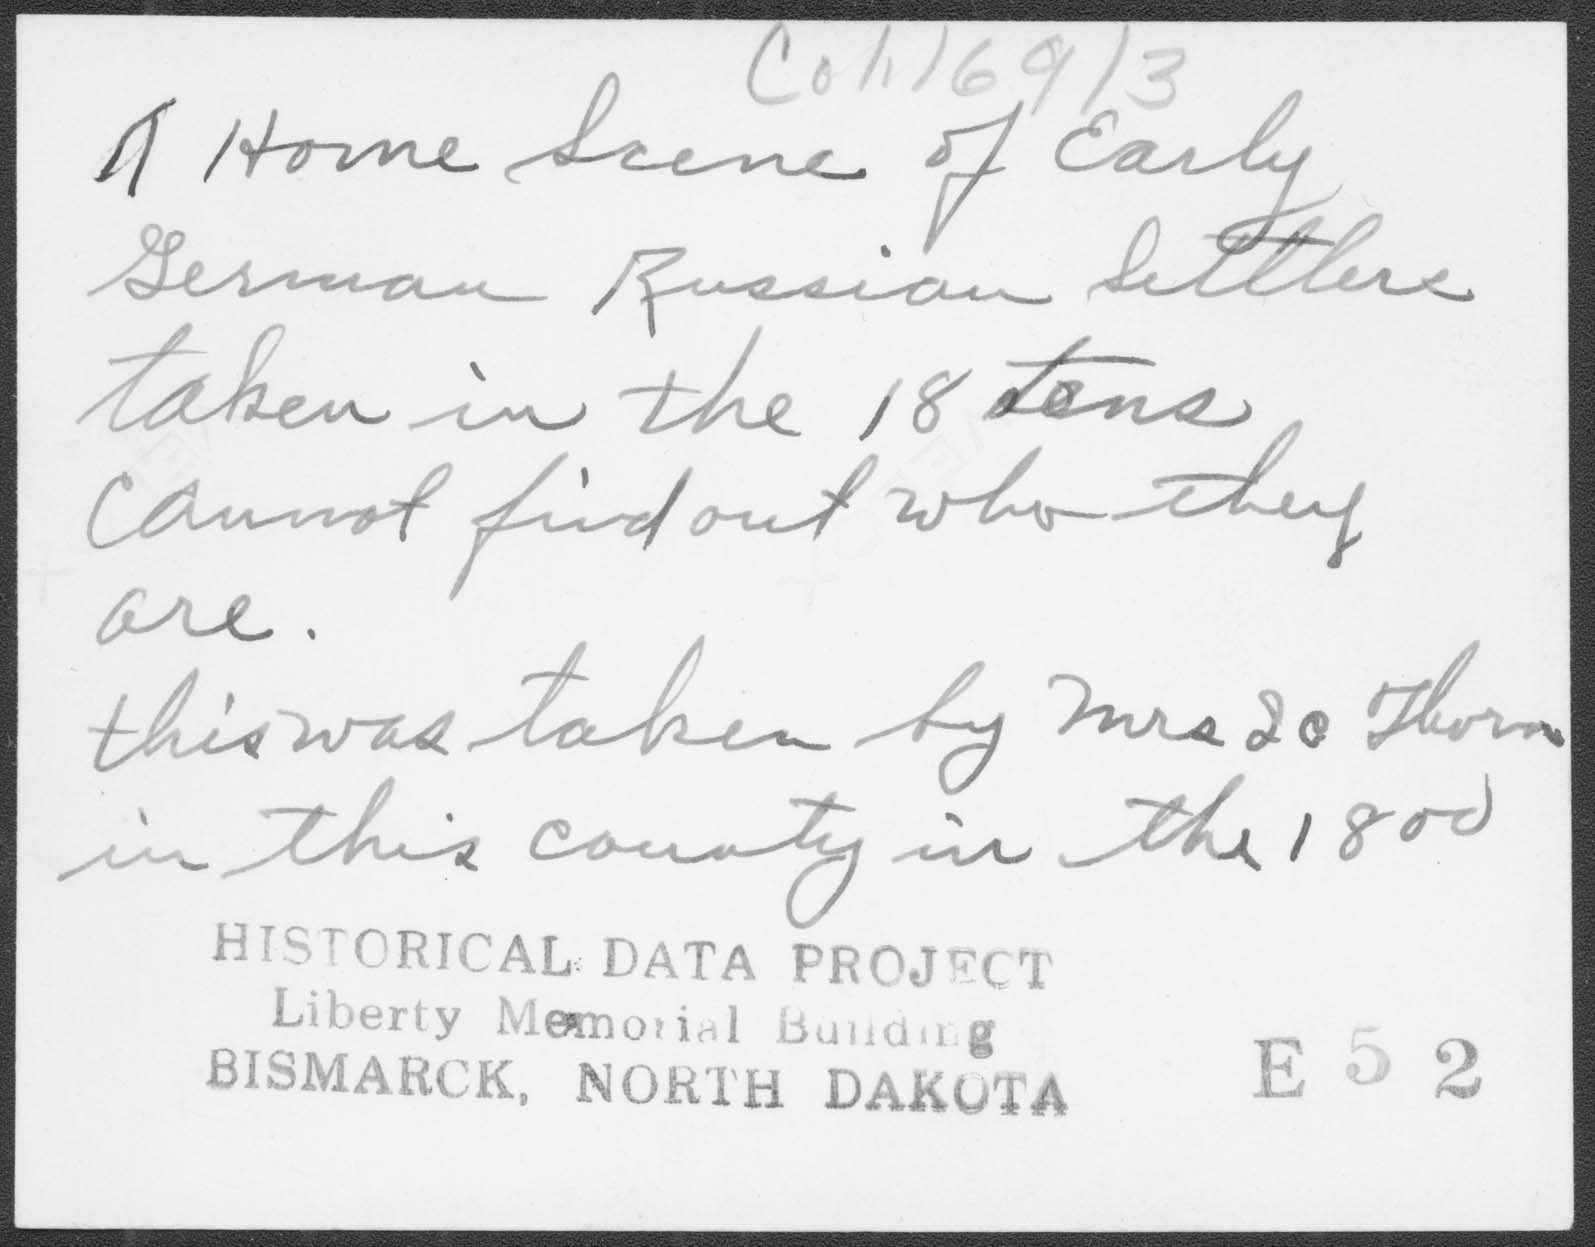 Col. 169/3
A Home Scene of Early
German Russian Settlers
taken in the 18 tens
Cannot find out who they
are.
this was taken by Mrs Thorn
in this county in the 1800
HISTORICAL DATA PROJECT
Liberty Memorial Building
BISMARCK, NORTH DAKOTA
E 5 2